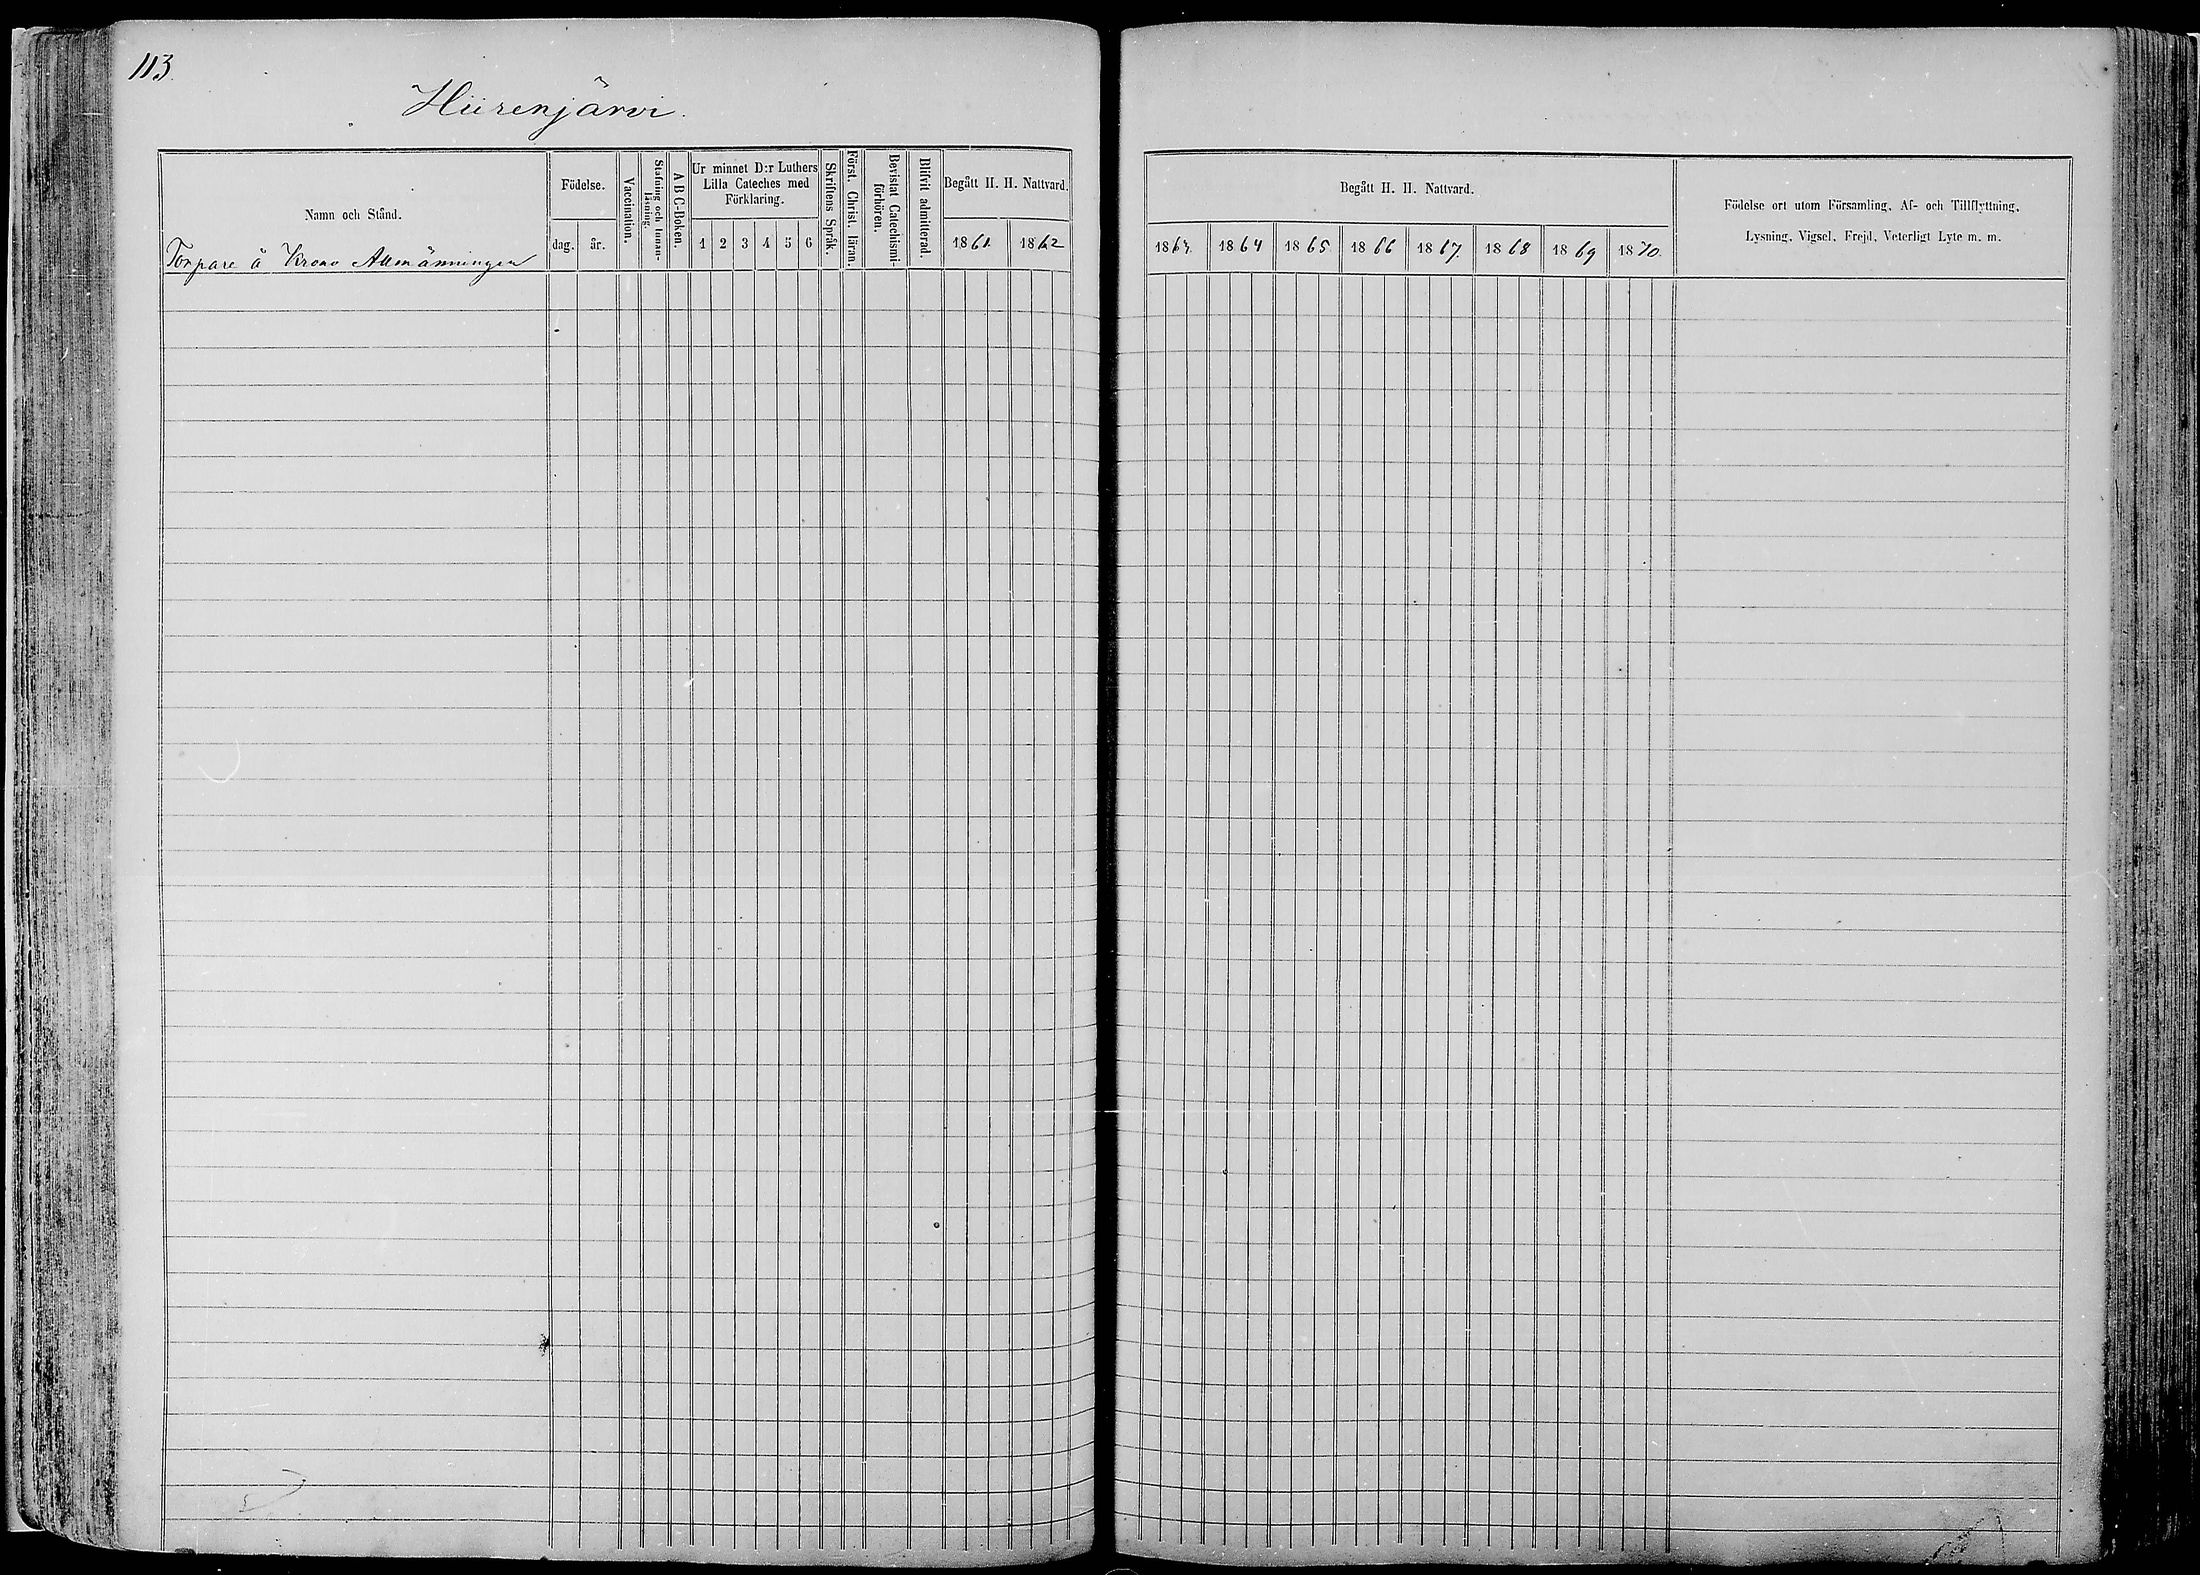 113.
Hiirenjärvi.
Namn och Stånd.
Torpare å Krono Allmänningen
Födelse.
dag.
år.
Vaccination.
Stafning och Innan-
läsning.
A B C-Boken.
Ur minnet D:r Luthers
Lilla Cateches med
Förklaring.
1 2 3 4 5 6
Skriftens Språk.
Först. Christ. läran.
Bevistat Catechismi-
förhören.
Blifvit admitterad.
Begått H. H. Nattvard.
1861. 1862
Begått H. H. Nattvard.
1863. 1864 1865. 1866 1867. 1868 1869 1870.
Födelse ort utom Församling, Af- och Tillflyttning,
Lysning, Vigsel, Frejd, Veterligt Lyte m. m.